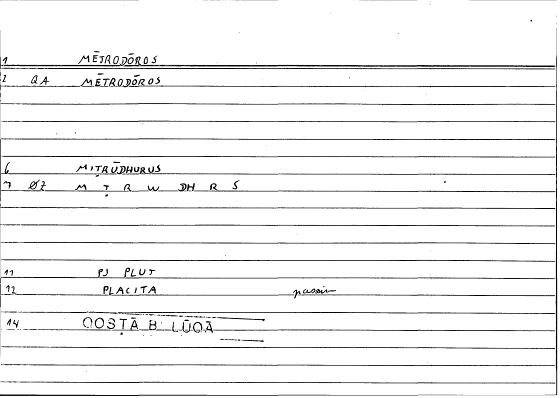 1 MĒTRODŌROS
2 QA MĒTRODŌROS
6 MIṬRŪDHURUS
7 ØZ M Ṭ R W DH R S
11 PS PLUT
12 PLACITA passim
14 QOSṬĀ B LŪQĀ